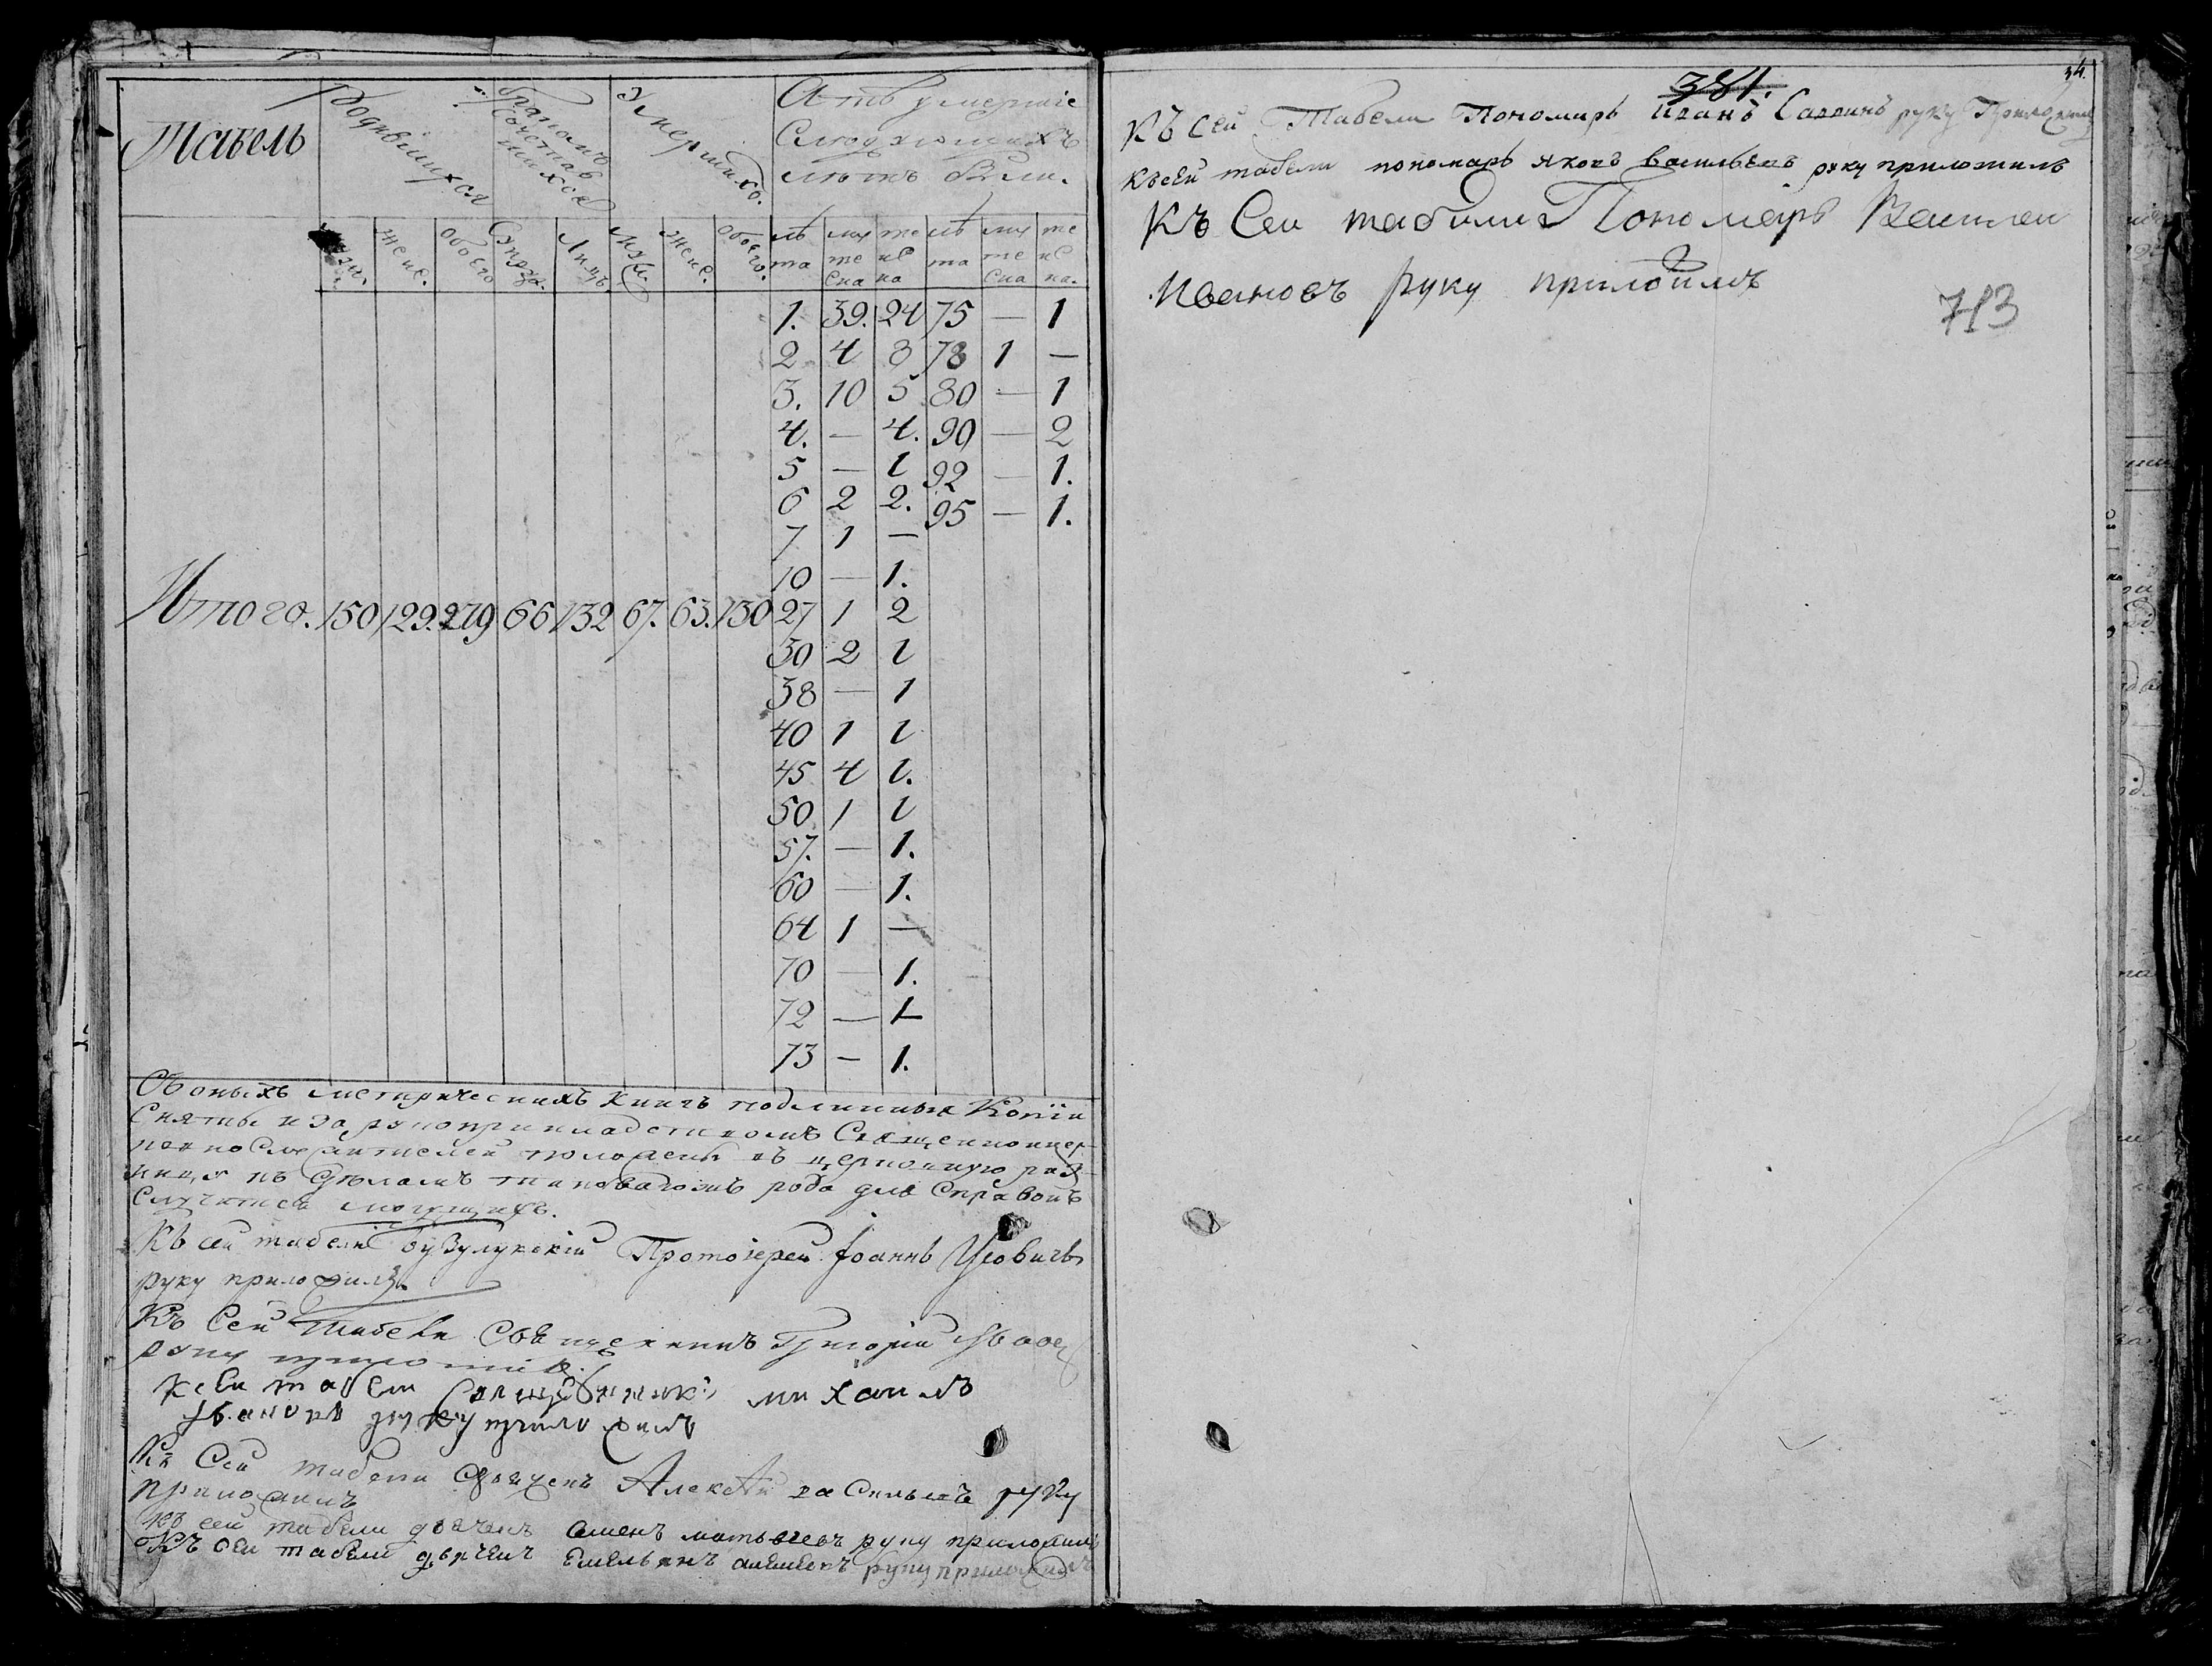 Табель
Родившихся
Бракомъ сочетавшихся
Умершихъ.
А тѣ умершіе
Слюдующихъ
лѣтъ были.
муж. женс. обоего Супруж. Лицъ. муж. женс. обоего. лѣта мужеска женска лѣта мужеска женска.
1. 39. 24 75 — 1
2 4 8 78 1 —
3. 10 5 80 — 1
4. — 4. 90 — 2
5 — 1 92 — 1.
6 2 2. 95 — 1.
7 1 —
10 — 1.
Итого. 150 129. 279 66 132 67. 63. 130 27 1 2
30 2 1
38 — 1
40 1 1
45 4 1.
50 1 1
57. — 1.
60 — 1.
64 1 —
70 — 1.
72 — 1
73 — 1.
Съ оныхъ метрическихъ книгъ подлинныя Копіи
Сняты и за рукоприкладствомъ Священноцер-
ковнослужителей положены въ церковную риз-
ницу къ дѣламъ таковагожъ рода для Справокъ
Случится могущихъ.
Къ сей табели бузулукскій Протоіерей Іоаннъ
руку приложилъ.
Къ Сей табели Священникъ Григорій
руку приложилъ.
К сей табели Священникъ михаилъ
Ивановъ руку приложилъ
Къ Сей табели Алексѣй Васильевъ руку
приложилъ
Къ сей табели дьячекъ Семенъ матвѣевъ руку приложилъ
Къ сей табели дьячекъ Емельянъ руку приложилъ
34.
381.
Къ Сей Табели Пономарь Иванъ Саввинъ руку Приложилъ
Къ сей табели пономарь яковъ васильевъ руку приложилъ
Къ Сей табели Пономарь Василеи
Ивановъ руку приложилъ
713